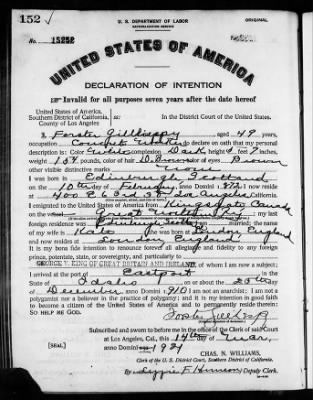 152 ✓
U. S. DEPARTMENT OF LABOR
NATURALIZATION SERVICE
ORIGINAL
No. 15252
UNITED STATES OF AMERICA
DECLARATION OF INTENTION
Invalid for all purposes seven years after the date hereof
United States of America,
Southern District of California,
County of Los Angeles
In the District Court of the United States.
I, Forster aged 49 years,
occupation Concrete do declare on oath that my personal
description is: Color White, complexion Dark, height 5 feet inches,
weight pounds, color of hair D. Brown, color of eyes Brown
other visible distinctive marks None
I was born in Edinburgh Scotland
on the 10th day of February, anno Domini 1872; I now reside
at 400 E. 3rd St. Los Angeles, California.
I emigrated to the United States of America from Kingsgate Canada
on the Great; my last
foreign residence was
wife is Kate; she was born at London England
and now resides at London England
It is my bona fide intention to renounce forever all allegiance and fidelity to any foreign
prince, potentate, state, or sovereignty, and particularly to
GEORGE V. KING OF GREAT BRITAIN AND IRELAND, of whom I am now a subject;
I arrived at the port of Eastport, in the
State of Idaho, on or about the 25th day
of December, anno Domini 1910; I am not an anarchist; I am not a
polygamist nor a believer in the practice of polygamy; and it is my intention in good faith
to become a citizen of the United States of America and to permanently reside therein:
SO HELP ME GOD.
Subscribed and sworn to before me in the office of the Clerk of said Court
at Los Angeles, Cal., this 14th day of Mar.
[SEAL]
anno Domini 1921
CHAS. N. WILLIAMS,
Clerk of the U. S. District Court, Southern District of California.
By F. Deputy Clerk.